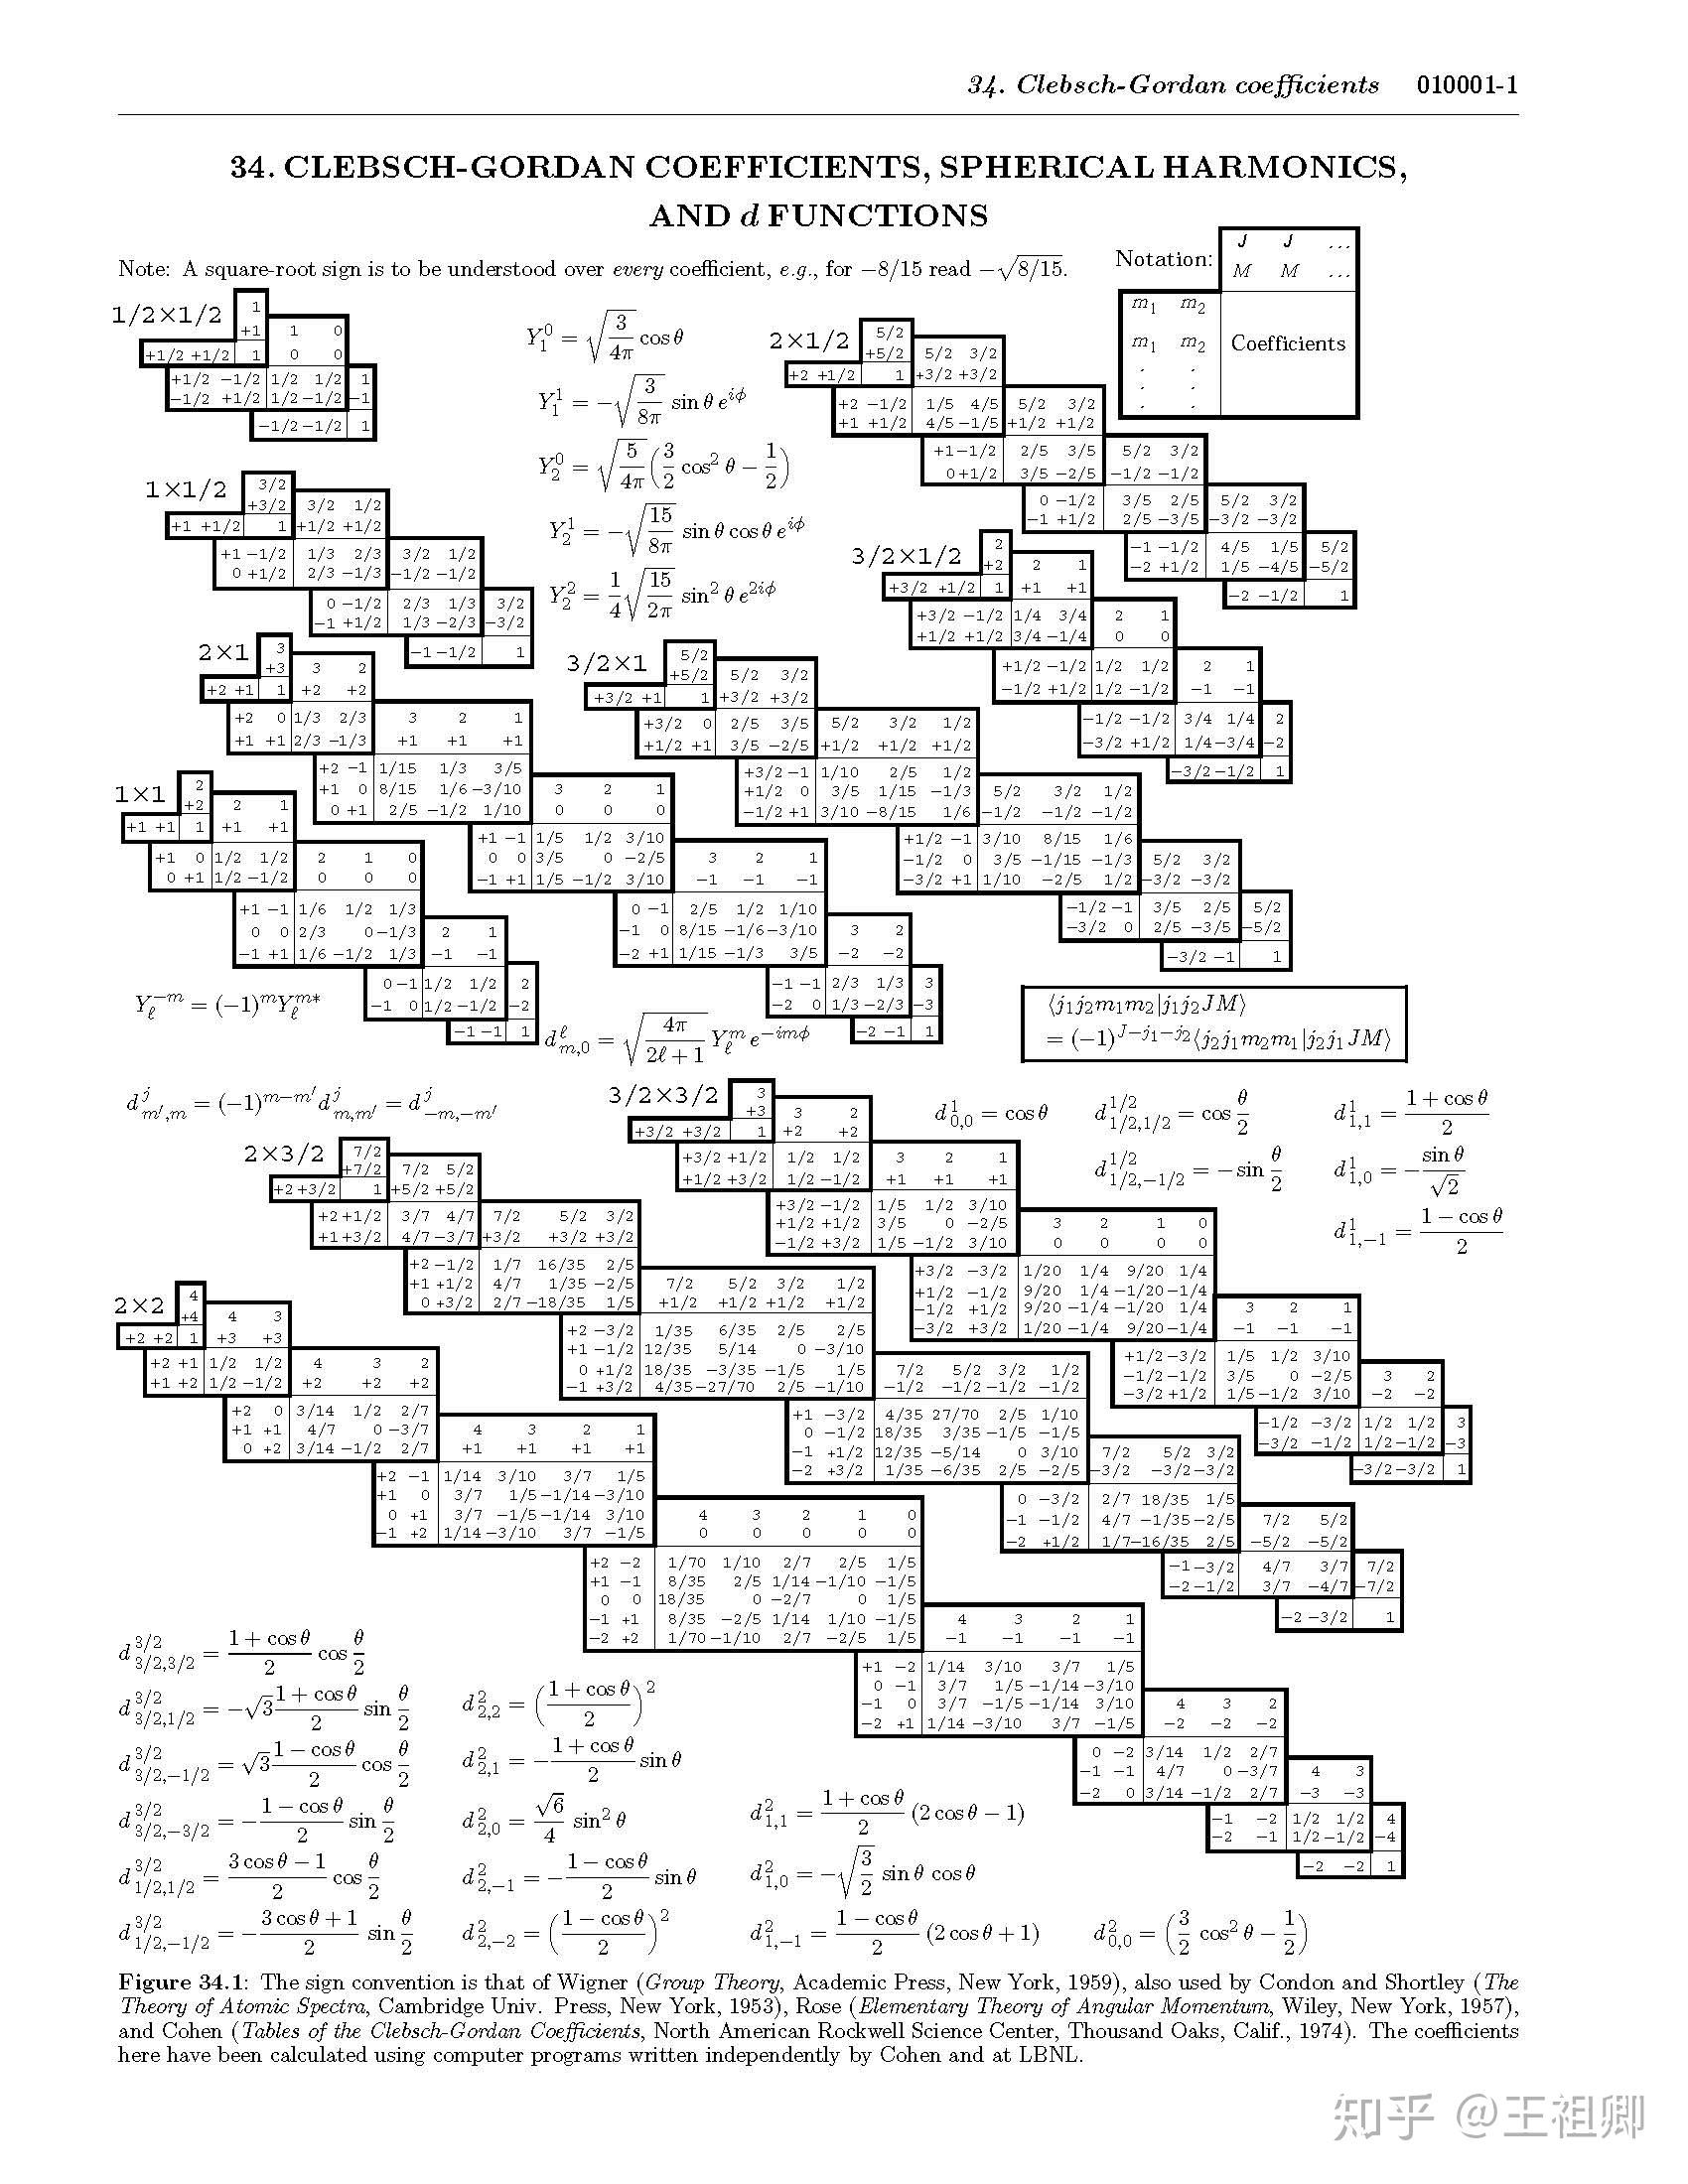 34. Clebsch-Gordan coefficients 010001-1
34. CLEBSCH-GORDAN COEFFICIENTS, SPHERICAL HARMONICS,
AND d FUNCTIONS
Note: A square-root sign is to be understood over every coefficient, e.g., for −8/15 read −√8/15.
Notation:
J J ...
M M ...
m1 m2
m1 m2 Coefficients
. .
. .
. .
1/2×1/2
1
+1 1 0
+1/2 +1/2 1 0 0
+1/2 −1/2 1/2 1/2 1
−1/2 +1/2 1/2 −1/2 −1
−1/2 −1/2 1
Y₁⁰ = √(3/4π) cos θ
Y₁¹ = −√(3/8π) sin θ e^{iϕ}
Y₂⁰ = √(5/4π) (3/2 cos² θ − 1/2)
Y₂¹ = −√(15/8π) sin θ cos θ e^{iϕ}
Y₂² = 1/4 √(15/2π) sin² θ e^{2iϕ}
2×1/2
5/2
+5/2 5/2 3/2
+2 +1/2 1 +3/2 +3/2
+2 −1/2 1/5 4/5 5/2 3/2
+1 +1/2 4/5 −1/5 +1/2 +1/2
+1 −1/2 2/5 3/5 5/2 3/2
0 +1/2 3/5 −2/5 −1/2 −1/2
0 −1/2 3/5 2/5 5/2 3/2
−1 +1/2 2/5 −3/5 −3/2 −3/2
−1 −1/2 4/5 1/5 5/2
−2 +1/2 1/5 −4/5 −5/2
−2 −1/2 1
1×1/2
3/2
+3/2 3/2 1/2
+1 +1/2 1 +1/2 +1/2
+1 −1/2 1/3 2/3 3/2 1/2
0 +1/2 2/3 −1/3 −1/2 −1/2
0 −1/2 2/3 1/3 3/2
−1 +1/2 1/3 −2/3 −3/2
−1 −1/2 1
3/2×1/2
2
+2 2 1
+3/2 +1/2 1 +1 +1
+3/2 −1/2 1/4 3/4 2 1
+1/2 +1/2 3/4 −1/4 0 0
+1/2 −1/2 1/2 1/2 2 1
−1/2 +1/2 1/2 −1/2 −1 −1
−1/2 −1/2 3/4 1/4 2
−3/2 +1/2 1/4 −3/4 −2
−3/2 −1/2 1
2×1
3
+3 3 2
+2 +1 1 +2 +2
+2 0 1/3 2/3 3 2 1
+1 +1 2/3 −1/3 +1 +1 +1
+2 −1 1/15 1/3 3/5
+1 0 8/15 1/6 −3/10 3 2 1
0 +1 2/5 −1/2 1/10 0 0 0
+1 −1 1/5 1/2 3/10
0 0 3/5 0 −2/5 3 2 1
−1 +1 1/5 −1/2 3/10 −1 −1 −1
0 −1 2/5 1/2 1/10
−1 0 8/15 −1/6 −3/10 3 2
−2 +1 1/15 −1/3 3/5 −2 −2
−1 −1 2/3 1/3 3
−2 0 1/3 −2/3 −3
−2 −1 1
3/2×1
5/2
+5/2 5/2 3/2
+3/2 +1 1 +3/2 +3/2
+3/2 0 2/5 3/5 5/2 3/2 1/2
+1/2 +1 3/5 −2/5 +1/2 +1/2 +1/2
+3/2 −1 1/10 2/5 1/2
+1/2 0 3/5 1/15 −1/3 5/2 3/2 1/2
−1/2 +1 3/10 −8/15 1/6 −1/2 −1/2 −1/2
+1/2 −1 3/10 8/15 1/6
−1/2 0 3/5 −1/15 −1/3 5/2 3/2
−3/2 +1 1/10 −2/5 1/2 −3/2 −3/2
−1/2 −1 3/5 2/5 5/2
−3/2 0 2/5 −3/5 −5/2
−3/2 −1 1
1×1
2
+2 2 1
+1 +1 1 +1 +1
+1 0 1/2 1/2 2 1 0
0 +1 1/2 −1/2 0 0 0
+1 −1 1/6 1/2 1/3
0 0 2/3 0 −1/3 2 1
−1 +1 1/6 −1/2 1/3 −1 −1
0 −1 1/2 1/2 2
−1 0 1/2 −1/2 −2
−1 −1 1
Y_ℓ^{−m} = (−1)^m Y_ℓ^{m*}
d^ℓ_{m,0} = √(4π/(2ℓ + 1)) Y_ℓ^m e^{−imϕ}
⟨j1j2m1m2|j1j2JM⟩
= (−1)^{J−j1−j2}⟨j2j1m2m1|j2j1JM⟩
d^j_{m′,m} = (−1)^{m−m′} d^j_{m,m′} = d^j_{−m,−m′}
3/2×3/2
3
+3 3 2
+3/2 +3/2 1 +2 +2
+3/2 +1/2 1/2 1/2 3 2 1
+1/2 +3/2 1/2 −1/2 +1 +1 +1
+3/2 −1/2 1/5 1/2 3/10
+1/2 +1/2 3/5 0 −2/5 3 2 1 0
−1/2 +3/2 1/5 −1/2 3/10 0 0 0 0
+3/2 −3/2 1/20 1/4 9/20 1/4
+1/2 −1/2 9/20 1/4 −1/20 −1/4
−1/2 +1/2 9/20 −1/4 −1/20 1/4 3 2 1
−3/2 +3/2 1/20 −1/4 9/20 −1/4 −1 −1 −1
+1/2 −3/2 1/5 1/2 3/10
−1/2 −1/2 3/5 0 −2/5 3 2
−3/2 +1/2 1/5 −1/2 3/10 −2 −2
−1/2 −3/2 1/2 1/2 3
−3/2 −1/2 1/2 −1/2 −3
−3/2 −3/2 1
d¹_{0,0} = cos θ
d^{1/2}_{1/2,1/2} = cos θ/2
d^{1/2}_{1/2,−1/2} = − sin θ/2
d¹_{1,1} = (1 + cos θ)/2
d¹_{1,0} = − sin θ/√2
d¹_{1,−1} = (1 − cos θ)/2
2×3/2
7/2
+7/2 7/2 5/2
+2 +3/2 1 +5/2 +5/2
+2 +1/2 3/7 4/7 7/2 5/2 3/2
+1 +3/2 4/7 −3/7 +3/2 +3/2 +3/2
+2 −1/2 1/7 16/35 2/5
+1 +1/2 4/7 1/35 −2/5 7/2 5/2 3/2 1/2
0 +3/2 2/7 −18/35 1/5 +1/2 +1/2 +1/2 +1/2
+2 −3/2 1/35 6/35 2/5 2/5
+1 −1/2 12/35 5/14 0 −3/10
0 +1/2 18/35 −3/35 −1/5 1/5 7/2 5/2 3/2 1/2
−1 +3/2 4/35 −27/70 2/5 −1/10 −1/2 −1/2 −1/2 −1/2
+1 −3/2 4/35 27/70 2/5 1/10
0 −1/2 18/35 3/35 −1/5 −1/5
−1 +1/2 12/35 −5/14 0 3/10 7/2 5/2 3/2
−2 +3/2 1/35 −6/35 2/5 −2/5 −3/2 −3/2 −3/2
0 −3/2 2/7 18/35 1/5
−1 −1/2 4/7 −1/35 −2/5 7/2 5/2
−2 +1/2 1/7 −16/35 2/5 −5/2 −5/2
−1 −3/2 4/7 3/7 7/2
−2 −1/2 3/7 −4/7 −7/2
−2 −3/2 1
2×2
4
+4 4 3
+2 +2 1 +3 +3
+2 +1 1/2 1/2 4 3 2
+1 +2 1/2 −1/2 +2 +2 +2
+2 0 3/14 1/2 2/7
+1 +1 4/7 0 −3/7 4 3 2 1
0 +2 3/14 −1/2 2/7 +1 +1 +1 +1
+2 −1 1/14 3/10 3/7 1/5
+1 0 3/7 1/5 −1/14 −3/10
0 +1 3/7 −1/5 −1/14 3/10 4 3 2 1 0
−1 +2 1/14 −3/10 3/7 −1/5 0 0 0 0 0
+2 −2 1/70 1/10 2/7 2/5 1/5
+1 −1 8/35 2/5 1/14 −1/10 −1/5
0 0 18/35 0 −2/7 0 1/5
−1 +1 8/35 −2/5 1/14 1/10 −1/5 4 3 2 1
−2 +2 1/70 −1/10 2/7 −2/5 1/5 −1 −1 −1 −1
+1 −2 1/14 3/10 3/7 1/5
0 −1 3/7 1/5 −1/14 −3/10
−1 0 3/7 −1/5 −1/14 3/10 4 3 2
−2 +1 1/14 −3/10 3/7 −1/5 −2 −2 −2
0 −2 3/14 1/2 2/7
−1 −1 4/7 0 −3/7 4 3
−2 0 3/14 −1/2 2/7 −3 −3
−1 −2 1/2 1/2 4
−2 −1 1/2 −1/2 −4
−2 −2 1
d^{3/2}_{3/2,3/2} = (1 + cos θ)/2 cos θ/2
d^{3/2}_{3/2,1/2} = −√3 (1 + cos θ)/2 sin θ/2
d^{3/2}_{3/2,−1/2} = √3 (1 − cos θ)/2 cos θ/2
d^{3/2}_{3/2,−3/2} = − (1 − cos θ)/2 sin θ/2
d^{3/2}_{1/2,1/2} = (3 cos θ − 1)/2 cos θ/2
d^{3/2}_{1/2,−1/2} = − (3 cos θ + 1)/2 sin θ/2
d²_{2,2} = ((1 + cos θ)/2)²
d²_{2,1} = − (1 + cos θ)/2 sin θ
d²_{2,0} = √6/4 sin² θ
d²_{2,−1} = − (1 − cos θ)/2 sin θ
d²_{2,−2} = ((1 − cos θ)/2)²
d²_{1,1} = (1 + cos θ)/2 (2 cos θ − 1)
d²_{1,0} = −√(3/2) sin θ cos θ
d²_{1,−1} = (1 − cos θ)/2 (2 cos θ + 1)
d²_{0,0} = (3/2 cos² θ − 1/2)
Figure 34.1: The sign convention is that of Wigner (Group Theory, Academic Press, New York, 1959), also used by Condon and Shortley (The
Theory of Atomic Spectra, Cambridge Univ. Press, New York, 1953), Rose (Elementary Theory of Angular Momentum, Wiley, New York, 1957),
and Cohen (Tables of the Clebsch-Gordan Coefficients, North American Rockwell Science Center, Thousand Oaks, Calif., 1974). The coefficients
here have been calculated using computer programs written independently by Cohen and at LBNL.
知乎 @王祖卿